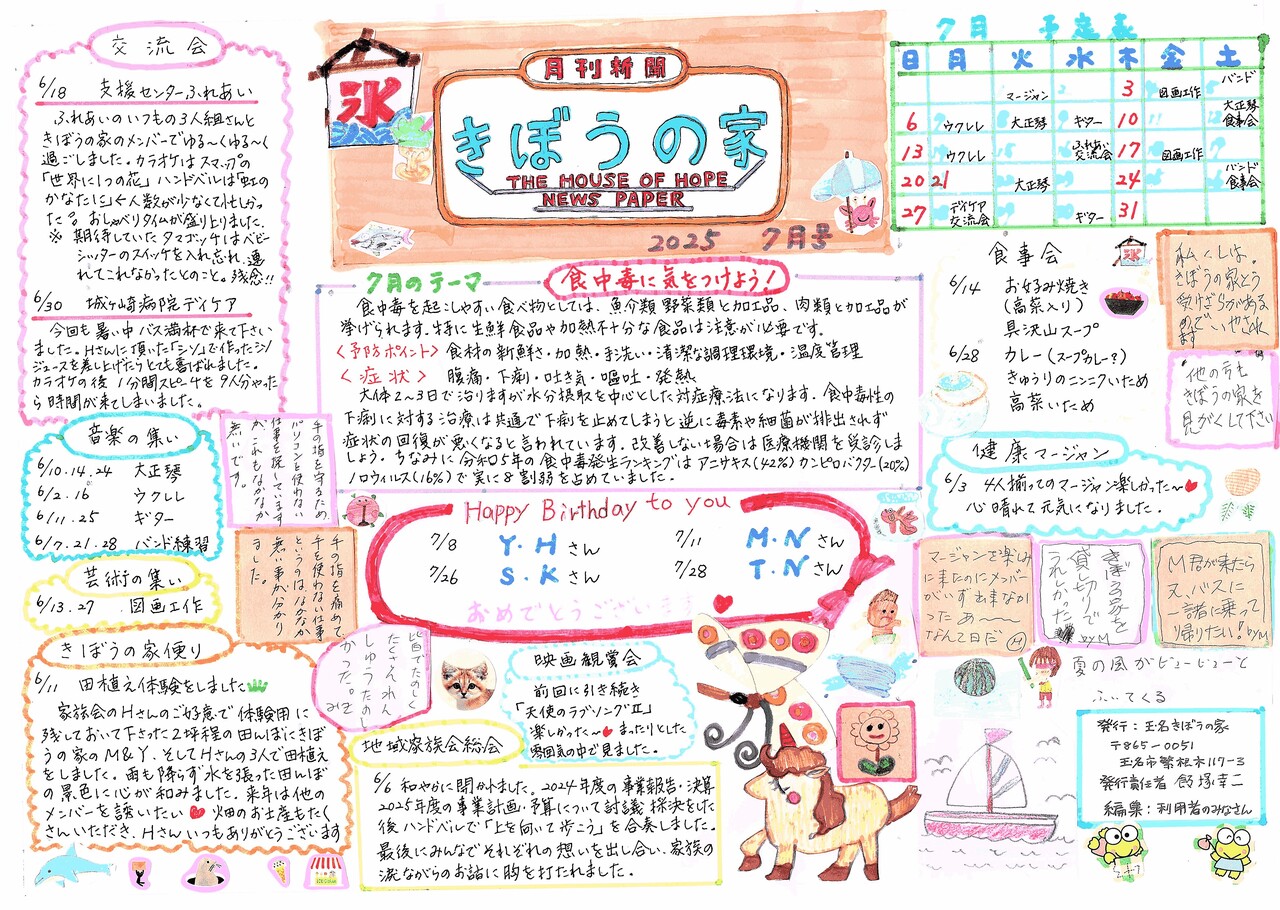 交流会
6/18 支援センターふれあい
ふれあいのいつもの3人組さんと
きぼうの家のメンバーでゆる～くゆる～く
過ごしました。カラオケはスマップの
「世界に1つの花」ハンドベルは「虹の
かなたに」少々人数が少なくて忙しかっ
た?。おしゃべりタイムが盛り上りました。
※ 期待していたタマボッチはベビー
シッターのスイッケを入れ忘れ、連
れてこれなかったとのこと。残念!!
6/30 城ヶ崎病院デイケア
今回も暑い中バス満杯で来て下さい
ました。Hさんに頂いた「シソ」で作ったシソ
ジュースを差し上げたらとても喜ばれました。
カラオケの後 1分間スピーチを9人分やった
ら時間が来てしまいました。
音楽の集い
6/10.14.24 大正琴
6/2.16 ウクレレ
6/11.25 ギター
6/7.21.28 バンド練習
芸術の集い
6/13.27 図画工作
手の指を守るため
パソコンを使わない
仕事を探しています
がこれもなかなか
無いです。
手の指を痛めて、
手を使わない仕事
というのは、なかなか
無い事が分かり
ました。
きぼうの家便り
6/11 田植え体験をしました
家族会のHさんのご好意で体験用に
残しておいて下さった2坪程の田んぼにきぼ
うの家のM&Y、そしてHさんの3人で田植え
をしました。雨も降らず水を張った田んぼ
の景色に心が和みました。来年は他の
メンバーを誘いたい 畑のお土産もたく
さんいただき、Hさんいつもありがとうございます
氷
月刊新聞
きぼうの家
THE HOUSE OF HOPE
NEWS PAPER
2025 7月号
7月のテーマ
食中毒に気をつけよう!
食中毒を起こしやすい食べ物としては、魚介類 野菜類と加工品、肉類と加工品が
挙げられます。特に生鮮食品や加熱不十分な食品は注意が必要です。
<予防ポイント> 食材の新鮮さ・加熱・手洗い・清潔な調理環境・温度管理
<症状> 腹痛・下痢・吐き気・嘔吐・発熱
大体2～3日で治りますが水分摂取を中心とした対症療法になります。食中毒性の
下痢に対する治療は共通で下痢を止めてしまうと逆に毒素や細菌が排出されず
症状の回復が悪くなると言われています。改善しない場合は医療機関を受診しま
しょう。ちなみに令和5年の食中毒発生ランキングはアニサキス(42%)カンピロバクター(20%)
ノロウィルス(16%)で実に8割弱を占めていました。
Happy Birthday to you
7/8 Y.Hさん 7/11 M.Nさん
7/26 S.Kさん 7/28 T.Nさん
おめでとうございます
皆でたのしく
たくさんれん
しゅうたのし
かった。
みさ
映画観賞会
前回に引き続き
「天使のラブソングⅡ」
楽しかった～ まったりとした
雰囲気の中で見ました。
地域家族会総会
6/6 和やかに開かれました。2024年度の事業報告・決算
2025年度の事業計画・予算について討議 採決をした
後ハンドベルで「上を向いて歩こう」を合奏しました。
最後にみんなでそれぞれの想いを出し合い、家族の
涙ながらのお話に胸を打たれました。
7月 予定表
日 月 火 水 木 金 土
マージャン 3 図画工作 バンド
6 ウクレレ 大正琴 ギター 10 大正琴 食事会
13 ウクレレ ふれあい交流会 17 図画工作
20 21 大正琴 24 バンド 食事会
27 デイケア交流会 ギター 31
食事会
氷
6/14 お好み焼き
(高菜入り)
具沢山スープ
6/28 カレー(スープカレー?)
きゅうりのニンニクいため
高菜いため
私くしは、
きぼうの家とう
受けざらがある
のでいやされ
ます
他の方も
きぼうの家を
見がくして下さい
健康マージャン
6/3 4人揃ってのマージャン楽しかった～
心晴れて元気になりました。
マージャンを楽しみ
に来たのにメンバー
がいず出来なか
ったあ～～
なんて日だ H
きぼうの家を
貸し切りで
うれしかった
byM
M君が来たら
又、バスに
一諸に乗って
帰りたい! byM
夏の風がビュービューと
ふいてくる
発行:玉名きぼうの家
〒865-0051
玉名市繁根木117-3
発行責任者 飯塚幸二
編集:利用者のみなさん